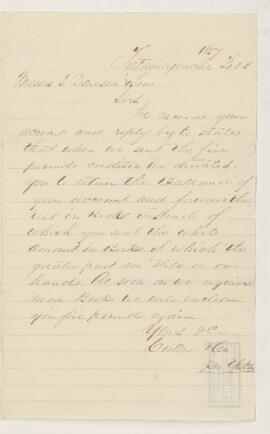 187
Tatamagouche Feb 2
Messrs J Dawson & Son
Sirs
We receive your
account and reply by to state
that when we sent the five
pounds credited we directed
you to retain the Ballance of
your account and forward the
rest in Books instead of
which you sent the whole
amount in Books of which the
greater part an still in our
hands. As soon as we require
more Books we will enclose
you five pounds again
Yours &c
& Co
per